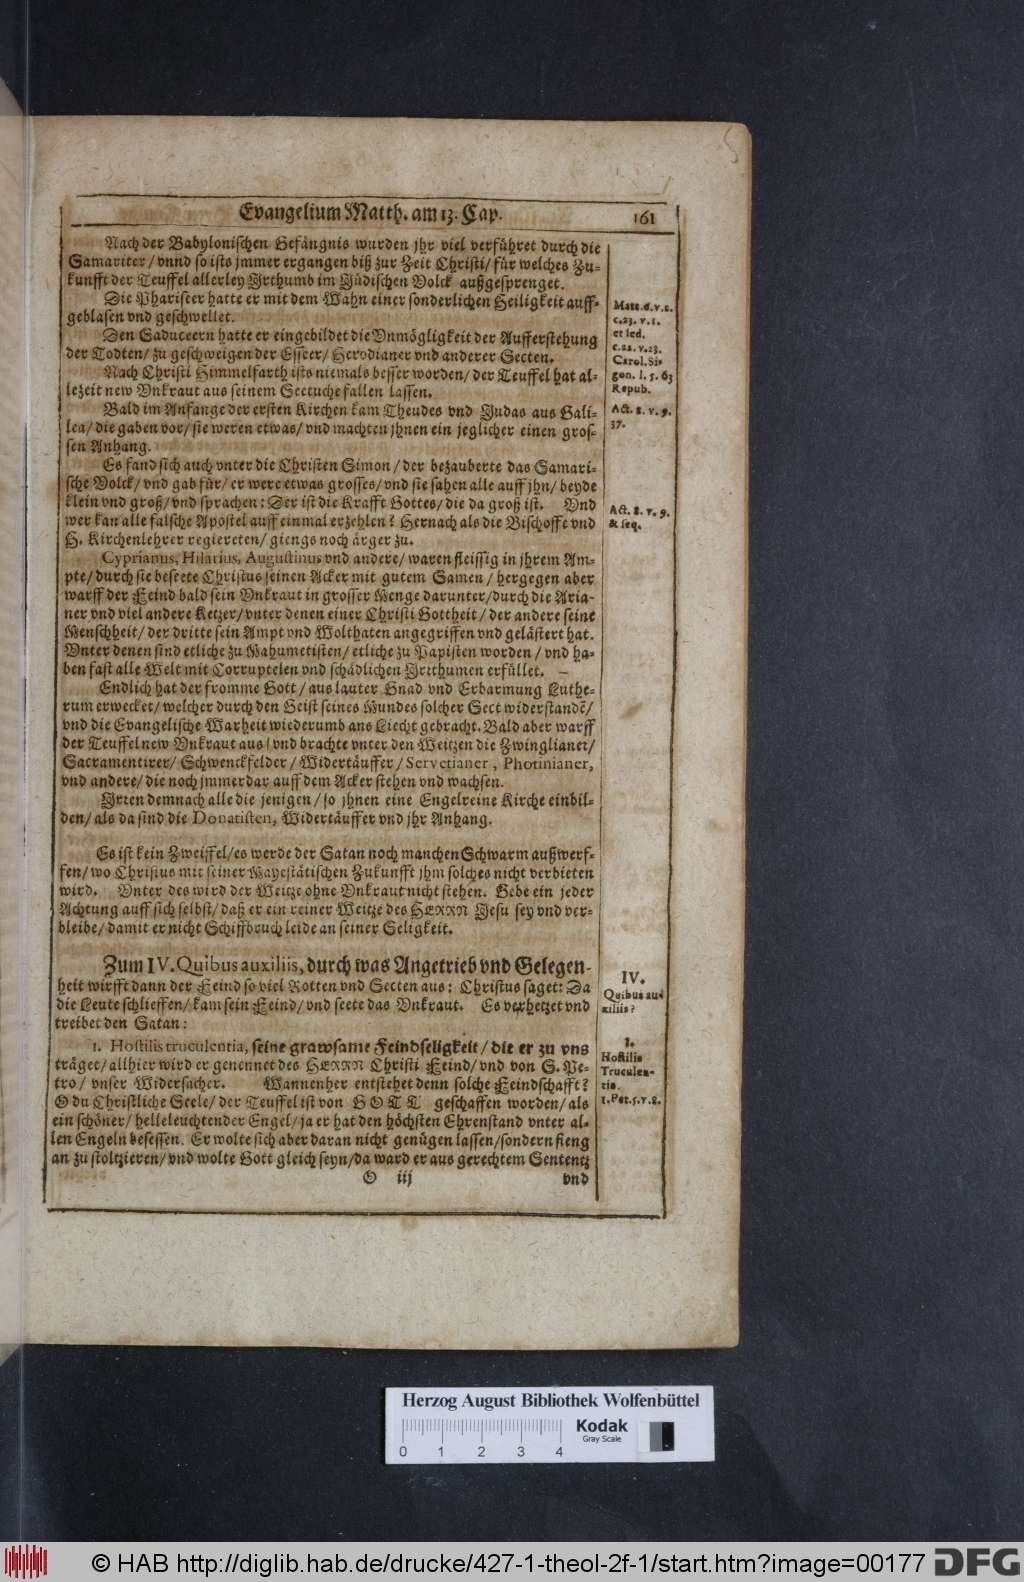 Evangelium Matth. am 13. Cap. 161
Nach der Babylonischen Gefängnis wurden jhr viel verführet durch die
Samariter/ vnnd so ists jmmer ergangen biß zur Zeit Christi/ für welches Zu-
kunfft der Teuffel allerley Jrthumb im Jüdischen Volck außgesprenget.
Die Phariseer hatte er mit dem Wahn einer sonderlichen Heiligkeit auff-
geblasen vnd geschwellet.
Den Saduceern hatte er eingebildet die Vnmögligkeit der Aufferstehung
der Todten/ zu geschweigen der Esseer/ Herodianer vnd anderer Secten.
Nach Christi Himmelfarth ists niemals besser worden/ der Teuffel hat al-
lezeit new Vnkraut aus seinem Seetuche fallen lassen.
Bald im Anfange der ersten Kirchen kam Theudes vnd Judas aus Gali-
lea/ die gaben vor/ sie weren etwas/ vnd machten jhnen ein jeglicher einen gros-
sen Anhang.
Es fand sich auch vnter die Christen Simon/ der bezauberte das Samari-
sche Volck/ vnd gab für/ er were etwas grosses/ vnd sie sahen alle auff jhn/ beyde
klein vnd groß/ vnd sprachen: Der ist die Krafft Gottes/ die da groß ist. Vnd
wer kan alle falsche Apostel auff einmal erzehlen? Hernach als die Bischoffe vnd
H. Kirchenlehrer regiereten/ giengs noch ärger zu.
Cyprianus, Hilarius, Augustinus vnd andere/ waren fleissig in jhrem Am-
pte/ durch sie beseete Christus seinen Acker mit gutem Samen/ hergegen aber
warff der Feind bald sein Vnkraut in grosser Menge darunter/ durch die Aria-
ner vnd viel andere Ketzer/ vnter denen einer Christi Gottheit/ der andere seine
Menschheit/ der dritte sein Ampt vnd Wolthaten angegriffen vnd gelästert hat.
Vnter denen sind etliche zu Mahumetisten/ etliche zu Papisten worden/ vnd ha-
ben fast alle Welt mit Corruptelen vnd schädlichen Jrrthumen erfüllet. –
Endlich hat der fromme Gott/ aus lauter Gnad vnd Erbarmung Luthe-
rum erwecket/ welcher durch den Geist seines Mundes solcher Sect widerstandẽ/
vnd die Evangelische Warheit wiederumb ans Liecht gebracht. Bald aber warff
der Teuffel new Vnkraut aus/ vnd brachte vnter den Weitzen die Zwinglianer/
Sacramentirer/ Schwenckfelder/ Widertäuffer/ Servetianer, Photinianer,
vnd andere/ die noch jmmerdar auff dem Acker stehen vnd wachsen.
Jrren demnach alle die jenigen/ so jhnen eine Engelreine Kirche einbil-
den/ als da sind die Donatisten, Widertäuffer vnd jhr Anhang.
Es ist kein Zweiffel/ es werde der Satan noch manchen Schwarm außwerf-
fen/ wo Christus mit seiner Mayestätischen Zukunfft jhm solches nicht verbieten
wird. Vnter des wird der Weitze ohne Vnkraut nicht stehen. Gebe ein jeder
Achtung auff sich selbst/ daß er ein reiner Weitze des HERRN Jesu sey vnd ver-
bleibe/ damit er nicht Schiffbruch leide an seiner Seligkeit.
Zum IV. Quibus auxiliis, durch was Angetrieb vnd Gelegen-
heit wirfft dann der Feind so viel Rotten vnd Secten aus: Christus saget: Da
die Leute schlieffen/ kam sein Feind/ vnd seete das Vnkraut. Es verhetzet vnd
treibet den Satan:
1. Hostilis truculentia, seine grawsame Feindseligkeit/ die er zu vns
träget/ allhier wird er genennet des HERRN Christi Feind/ vnd von S. Pe-
tro/ vnser Widersacher. Wannenher entstehet denn solche Feindschafft?
O du Christliche Seele/ der Teuffel ist von GOTT geschaffen worden/ als
ein schöner/ helleleuchtender Engel/ ja er hat den höchsten Ehrenstand vnter al-
len Engeln besessen. Er wolte sich aber daran nicht genügen lassen/ sondern fieng
an zu stoltzieren/ vnd wolte Gott gleich seyn/ da ward er aus gerechtem Sententz
O iij vnd
Matt. 6. v. 2.
c. 23. v. 1.
et seq.
c. 22. v. 23.
Carol. Si-
gon. l. 5. 63
Repub.
Act. 8. v. 9.
37.
Act. 8. v. 9.
& seq.
IV.
Quibus au-
xiliis?
1.
Hostilis
Truculen-
tia.
1. Pet. 5. v. 8.
Herzog August Bibliothek Wolfenbüttel
Kodak
Gray Scale
0 1 2 3 4
© HAB http://diglib.hab.de/drucke/427-1-theol-2f-1/start.htm?image=00177 DFG